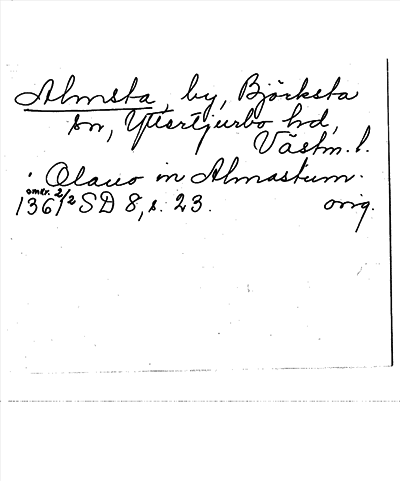 Almsta, by, Björksta
sn, Yttertjurbo hd,
Västm. l.
Olauo in Almastum.
omkr. 2/2
1361 SD 8, s. 23. orig.